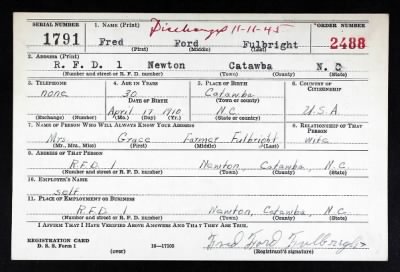 SERIAL NUMBER 1. NAME (Print) Discharged 11-11-45 ORDER NUMBER
1791 Fred Ford Fulbright 2488
(First) (Middle) (Last)
2. ADDRESS (Print)
R. F. D. 1 Newton Catawba N. C
(Number and street or R. F. D. number) (Town) (County) (State)
3. TELEPHONE 4. AGE IN YEARS 5. PLACE OF BIRTH 6. COUNTRY OF CITIZENSHIP
none 30 Catawba
DATE OF BIRTH (Town or county)
April 17, 1910 N.C. U.S.A
(Exchange) (Number) (Mo.) (Day) (Yr.) (State or country)
7. NAME OF PERSON WHO WILL ALWAYS KNOW YOUR ADDRESS 8. RELATIONSHIP OF THAT PERSON
Mrs. Grace Farmer Fulbright wife
(Mr., Mrs., Miss) (First) (Middle) (Last)
9. ADDRESS OF THAT PERSON
R.F.D. 1 Newton, Catawba, N.C.
(Number and street or R. F. D. number) (Town) (County) (State)
10. EMPLOYER'S NAME
self
11. PLACE OF EMPLOYMENT OR BUSINESS
R.F.D. 1 Newton, Catawba, N.C.
(Number and street or R. F. D. number) (Town) (County) (State)
I AFFIRM THAT I HAVE VERIFIED ABOVE ANSWERS AND THAT THEY ARE TRUE.
REGISTRATION CARD
D. S. S. Form 1 16-17105 Fred Ford Fulbright
(over) (Registrant's signature)